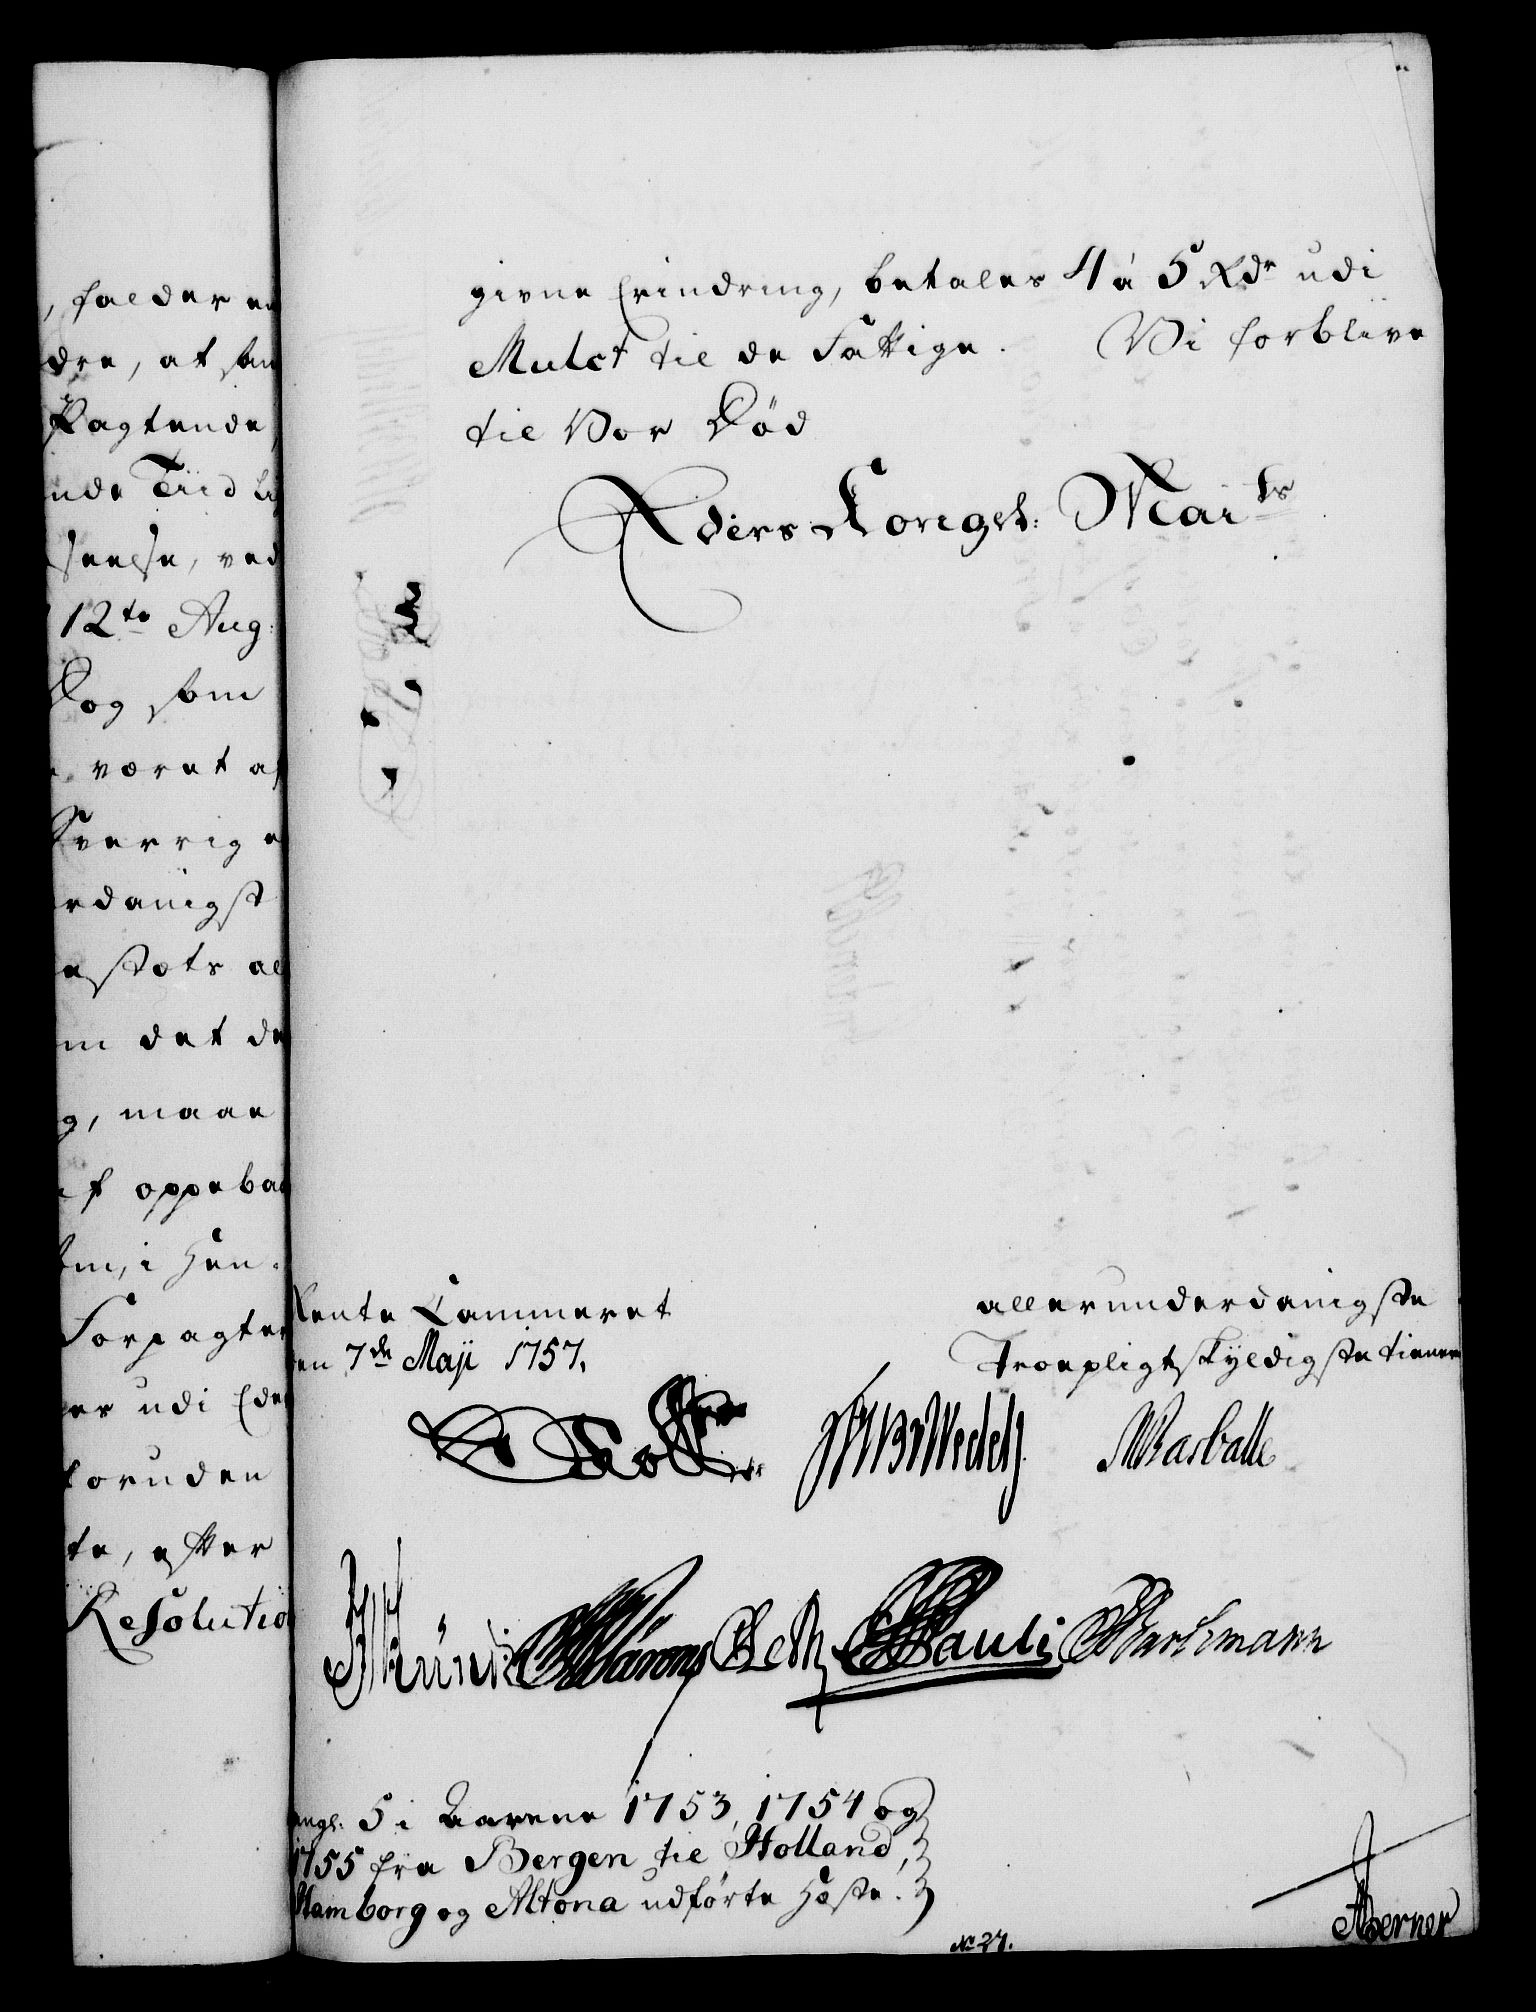 , falder en
dre, at som
Pagtende
nde Tiid li
seelse, ved
12te Aug:
Dog som
været af
Sverrige
rdanigst
estæts al
m det de
g, maae
af oppebaa
tm, i Hen-
Forpagter
er udi Ede
foruden
te, efter
Resolutio
givne Erindring, betales 4 á 5 Rdr udi
Mulct til de Fattige. Vi forblive
til Vor Død
Eders Kongel: Maits
Rente Cammeret
den 7de Maji 1757.
allerunderdanigste
Troepligtskyldigste tienere
Holst
Wedel
Barballe
Pauli
angl. 5 i Aarene 1753, 1754 og
1755 fra Bergen til Holland,
Hamborg og Altona udførte Heste.
Berner
No 27.